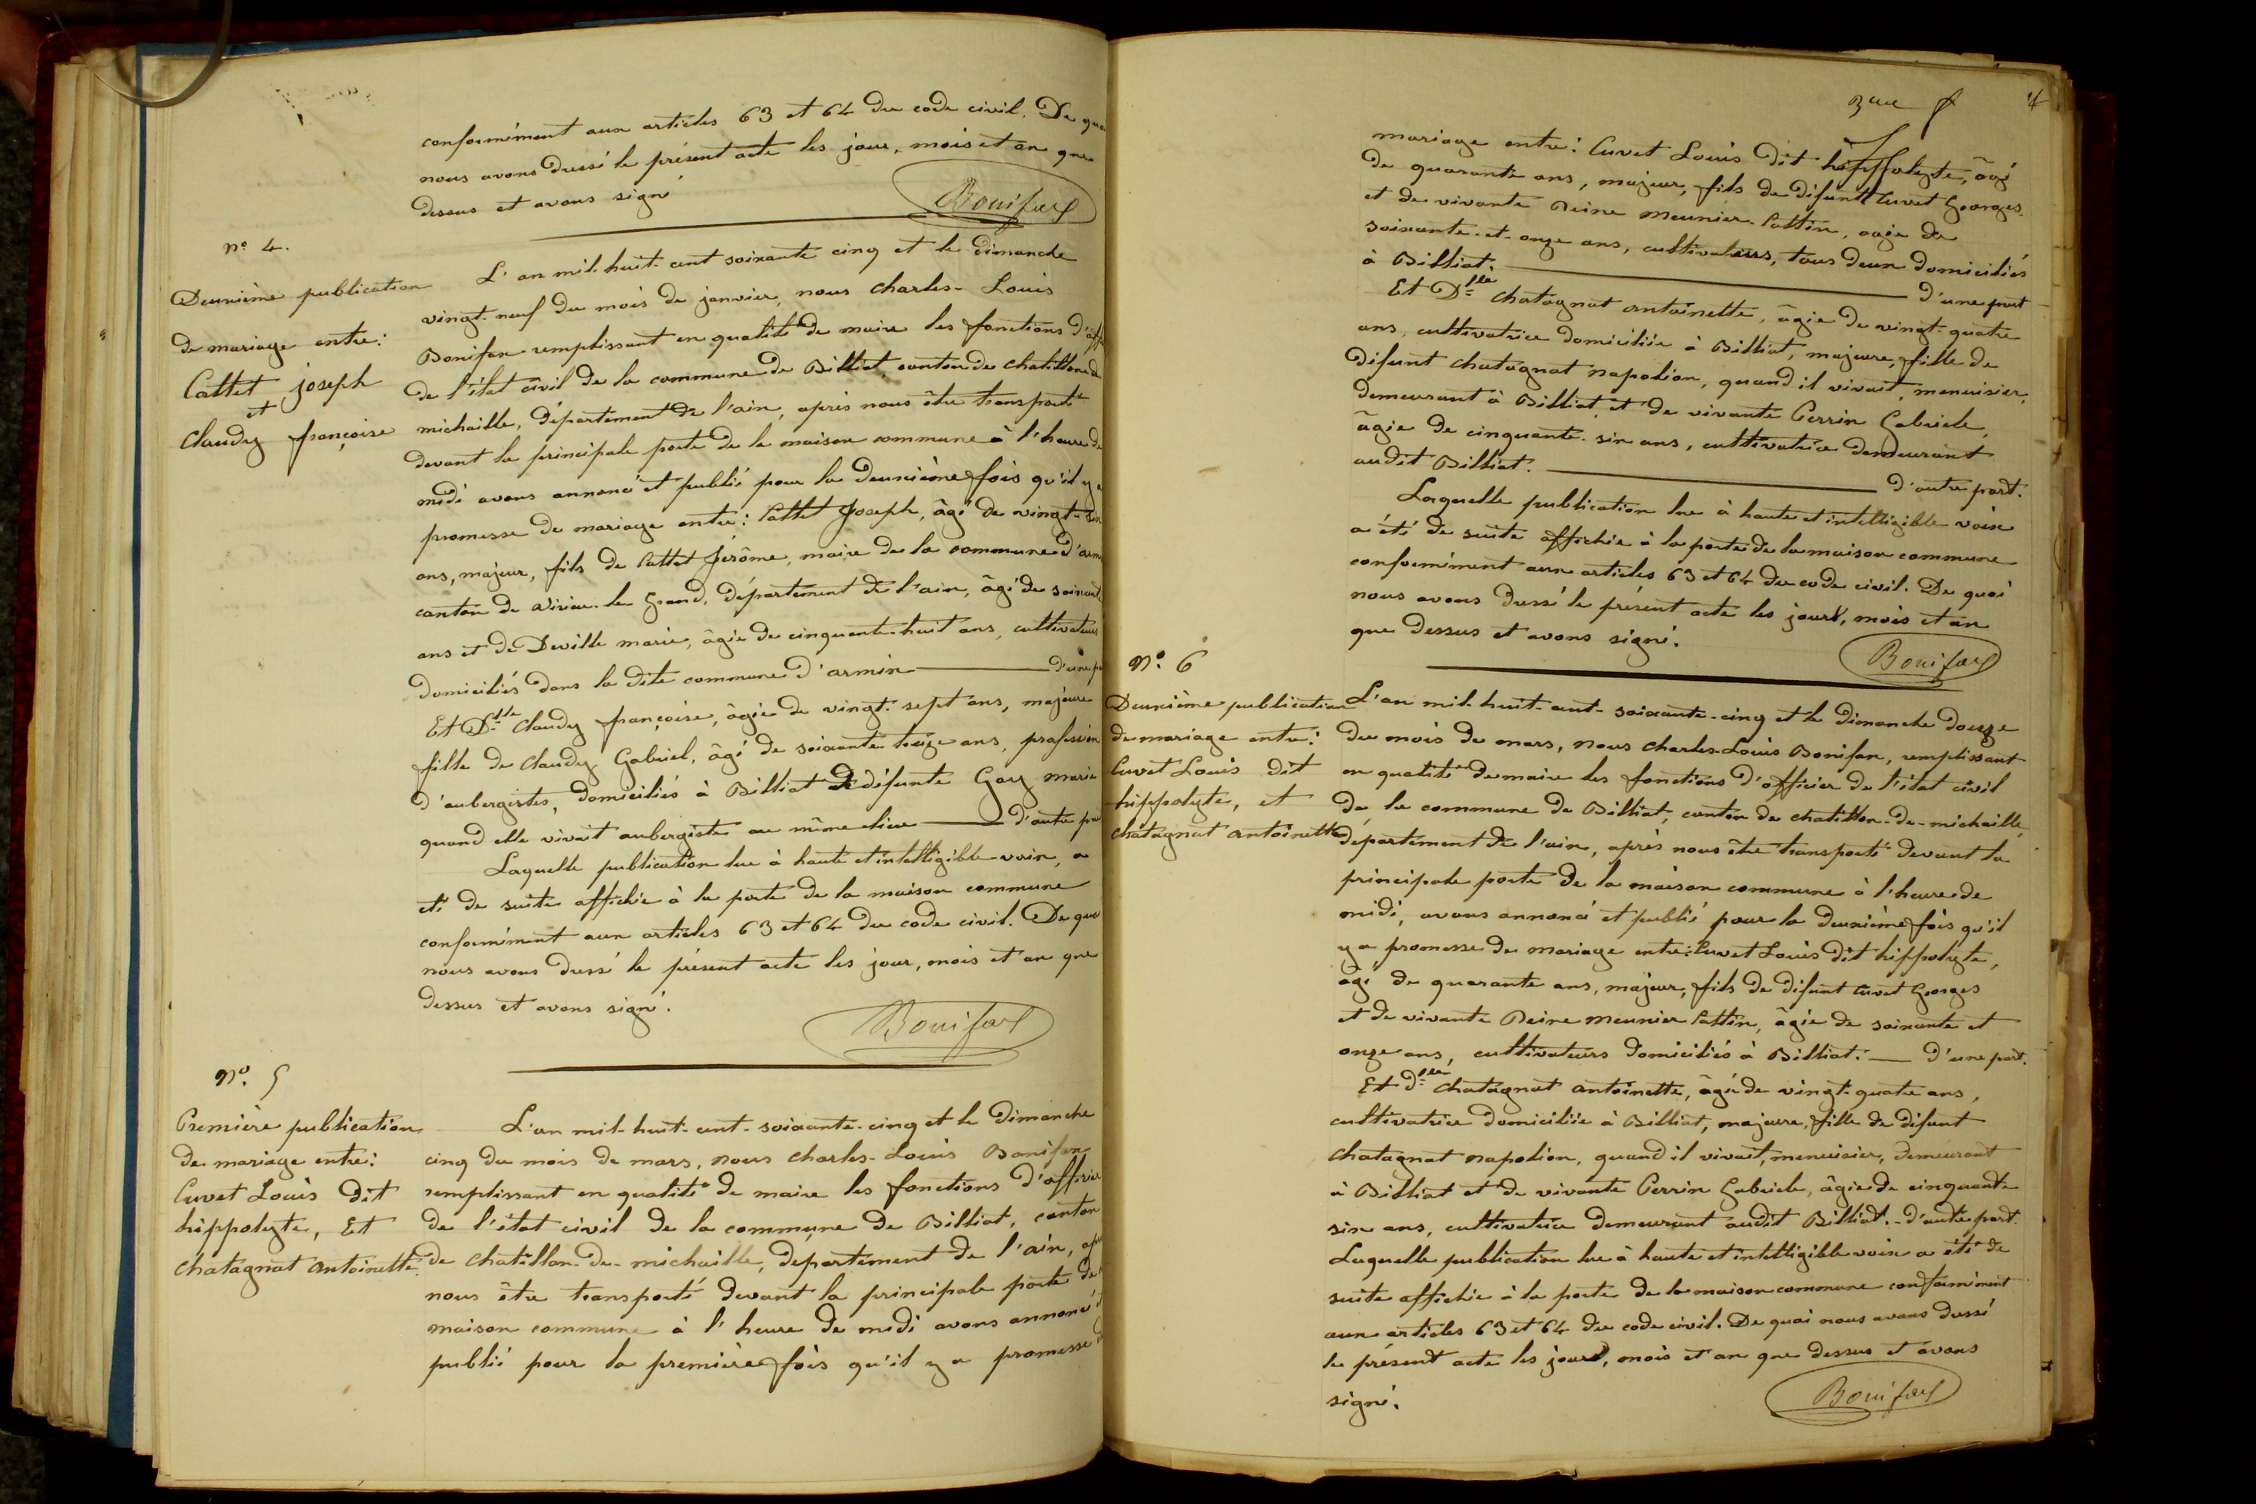 conformément aux articles 63 et 64 du code civil. De quoi
nous avons dressé le présent acte les jour, mois et an que
dessus et avons signé
Bonifax
n° 4.
Deuxième publication
de mariage entre:
Cattet joseph
et
Claudy françoise
L'an mil-huit-cent soixante cinq et le dimanche
vingt-neuf du mois de janvier, nous charles-Louis
Bonifax remplissant en qualité de maire les fonctions d'offi
de l'état civil de la commune de Billiat, canton de chatillon de
michaille, département de l'ain, après nous être transporté
devant la principale porte de la maison commune à l'heure de
midi avons annoncé et publié pour la deuxième fois qu'il y a
promesse de mariage entre: Cattet Joseph, âgé de vingt-six
ans, majeur, fils de Cattet Jérôme, maire de la commune d'arm
canton de Virieu-le Grand, département de l'ain, âgé de soixante
ans et de Deville marie, âgée de cinquante-huit ans, cultivateurs
domiciliés dans la dite commune d'armin d'une pa
Et Dlle Claudy françoise, âgée de vingt-sept ans, majeure
fille de Claudy Gabriel, âgé de soixante treize ans, profession
d'aubergistes, domiciliés à Billiat de défunte Gay marie
quand elle vivait aubergiste au même lieu d'autre pa
Laquelle publication lue à haute et intelligible voix, a
été de suite affichée à la porte de la maison commune
conformément aux articles 63 et 64 du code civil. De quoi
nous avons dressé le présent acte les jour, mois et an que
dessus et avons signé.
Bonifax
N°. 5
Première publication
de mariage entre:
Cuvet Louis dit
hippolyte, Et
Chatagnat antoinette.
L'an mil-huit-cent-soixante-cinq et le dimanche
cinq du mois de mars, nous charles-Louis Bonifax
remplissant en qualité de maire les fonctions d'officier
de l'état civil de la commune de Billiat, canton
de chatillon-de-michaille, département de l'ain, ap
nous être transporté devant la principale porte de
maison commune à l'heure de midi avons annoncé
publié pour la première fois qu'il y a promesse
4
mariage entre: Cuvet Louis dit hippolyte, âgé
de quarante ans, majeur, fils de défunt Cuvet Georges
et de vivante Reine meunier Cattin, âgée de
soixante-et-onze ans, cultivateurs, tous deux domiciliés
à Billiat. d'une part
Et Dlle Chatagnat antoinette, âgée de vingt-quatre
ans, cultivatrice domiciliée à Billiat, majeure, fille de
défunt Chatagnat napoléon, quand il vivait, menuisier,
demeurant à Billiat, et de vivante Perrin Gabriele,
âgée de cinquante-six ans, cultivatrice demeurant
audit Billiat. d'autre part.
Laquelle publication lue à haute et intelligible voix
a été de suite affichée à la porte de la maison commune
conformément aux articles 63 et 64 du code civil. De quoi
nous avons dressé le présent acte les jour, mois et an
que dessus et avons signé.
Bonifax
N°. 6
Deuxième publication
de mariage entre:
Cuvet Louis dit
hippolyte, et
Chatagnat antoinette
L'an mil-huit-cent-soixante-cinq et le dimanche douze
du mois de mars, nous charles-Louis Bonifax, remplissant
en qualité de maire les fonctions d'officier de l'état civil
de la commune de Billiat, canton de chatillon-de-michaille,
département de l'ain, après nous être transporté devant la
principale porte de la maison commune à l'heure de
midi, avons annoncé et publié pour la deuxième fois qu'il
y a promesse de mariage entre: Cuvet Louis dit hippolyte,
âgé de quarante ans, majeur, fils de défunt Cuvet Georges
et de vivante Reine meunier Cattin, âgée de soixante et
onze ans, cultivateurs domiciliés à Billiat. d'une part.
Et dlle Chatagnat antoinette, âgée de vingt-quatre ans,
cultivatrice domiciliée à Billiat, majeure, fille de défunt
Chatagnat napoléon, quand il vivait, menuisier, demeurant
à Billiat et de vivante Perrin Gabriele, âgée de cinquante
six ans, cultivatrice demeurant audit Billiat. - d'autre part.
Laquelle publication lue à haute et intelligible voix a été de
suite affichée à la porte de la maison commune conformément
aux articles 63 et 64 du code civil. De quoi nous avons dressé
le présent acte les jour, mois et an que dessus et avons
signé.
Bonifax